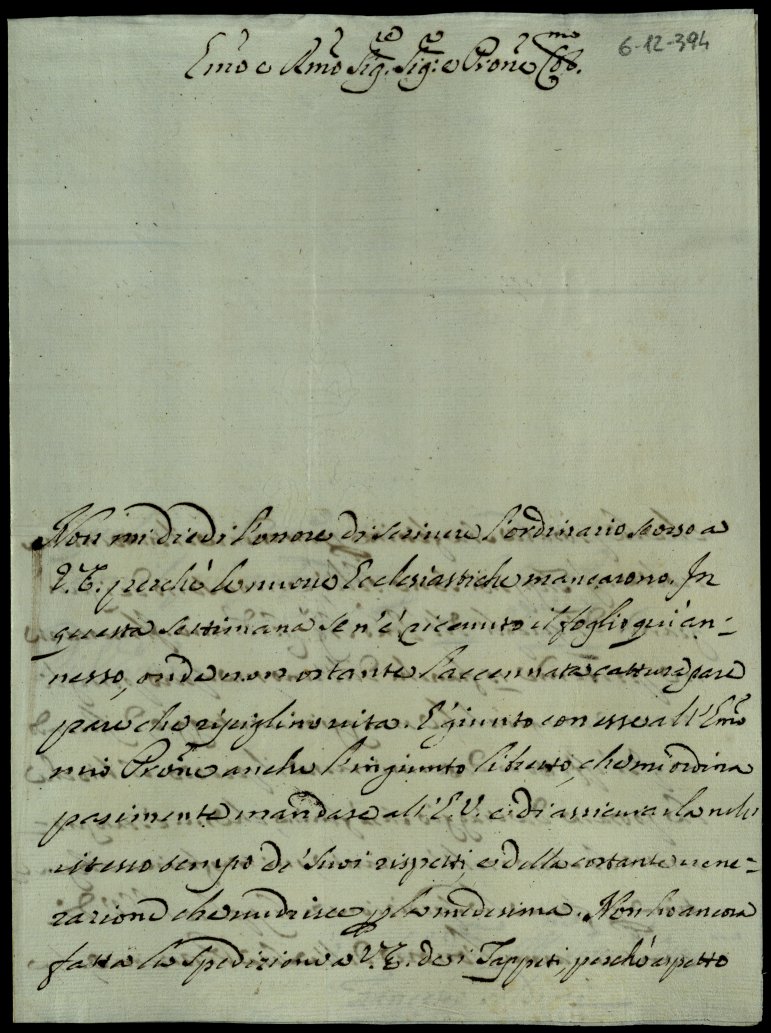 6-12-394
Emõ e Rmõ Sig.re Sig.re e Prõne Col.mo
Non mi diedi l'onore di scrivere l'ordinario scorso a
V. E. perchè le nuove Ecclesiastiche mancarono. In
questa settimana se n'è ricevuto il foglio quì an-
nesso, onde non ostante l'accennata cattura pare
pare che ripiglino vita. È giunto con esse all'Emõ
mio Prõne anche l'ingiunto libretto, che mi ordina
parimente mandare all'E.V. e di assicurarla nello
istesso tempo de' suoi rispetti, e della costante vene-
razione che nudrisce p la medesima. Non ho ancora
fatta la spedizione a V. E. dei Tappeti, perchè aspetto